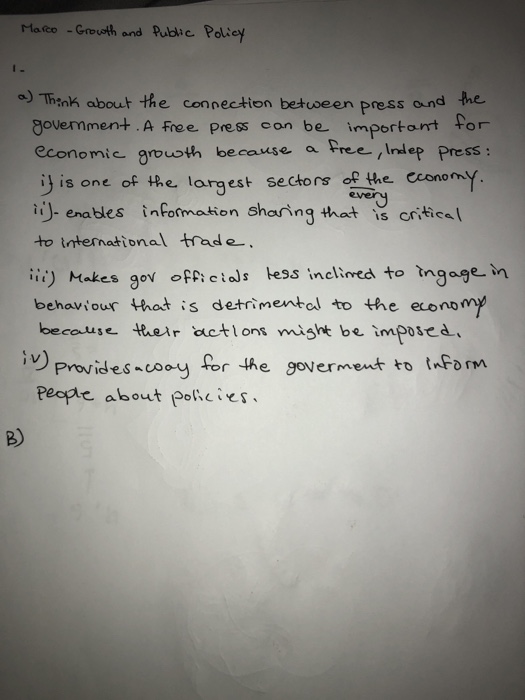 Marco - Growth and Public Policy
1-
a) Think about the connection between press and the
government. A free press can be important for
economic growth because a free, Indep press:
i) is one of the largest sectors of the economy.
every
ii)- enables information sharing that is critical
to international trade.
iii) Makes gov officials less inclined to ingage in
behaviour that is detrimental to the economy
because their actions might be imposed.
iv) provides a way for the goverment to inform
People about policies.
B)